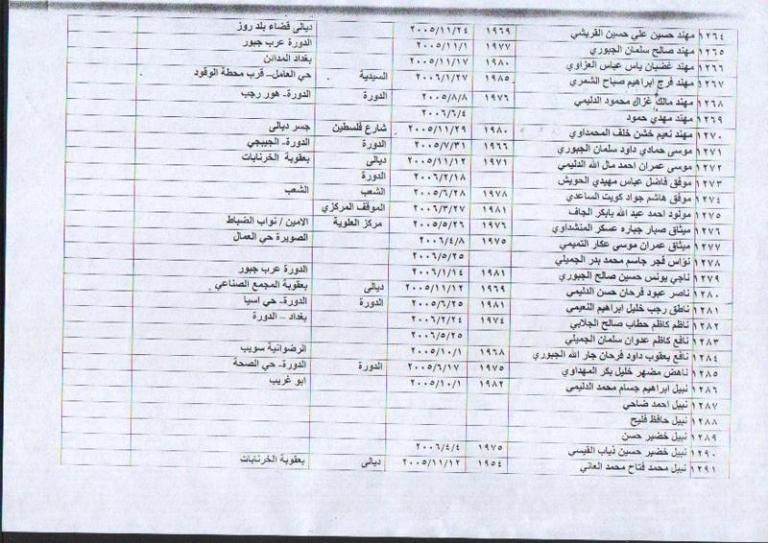 ١٢٦٤ مهند حسين علي حسين القريشي ١٩٦٩ ٢٠٠٥/١١/٢٤ ديالى قضاء بلد روز
١٢٦٥ مهند صالح سلمان الجبوري ١٩٧٧ ٢٠٠٥/١١/١ الدورة عرب جبور
١٢٦٦ مهند غضبان ياس عباس العزاوي ١٩٨٠ ٢٠٠٥/١١/١٧ بغداد المدائن
١٢٦٧ مهند فرج ابراهيم صباح الشمري ١٩٨٥ ٢٠٠٦/١/٢٧ السيدية حي العامل- قرب محطة الوقود
١٢٦٨ مهند مالك غزال محمود الدليمي ١٩٧٦ ٢٠٠٥/٨/٨ الدورة الدورة- هور رجب
١٢٦٩ مهند مهدي حمود ٢٠٠٦/٦/٤
١٢٧٠ مهند نعيم خشن خلف المحمداوي ١٩٨٠ ٢٠٠٥/١١/٢٩ شارع فلسطين جسر ديالى
١٢٧١ موسى حمادي داود سلمان الجبوري ١٩٦٦ ٢٠٠٥/٧/٣١ الدورة الدورة- الجيبجي
١٢٧٢ موسى عمران احمد مال الله الدليمي ١٩٧١ ٢٠٠٥/١١/١٢ ديالى بعقوبة الخرنابات
١٢٧٣ موفق فاضل عباس مهيدي الحويش ٢٠٠٦/٢/١٨ الدورة
١٢٧٤ موفق هاشم جواد كويت الساعدي ١٩٧٨ ٢٠٠٥/٦/٢٨ الشعب الشعب
١٢٧٥ مولود احمد عبد الله بابكر الجاف ١٩٨١ ٢٠٠٦/٣/٢٧ الموقف المركزي
١٢٧٦ ميثاق صبار جباره عسكر المنشداوي ١٩٧٦ ٢٠٠٥/٥/٢٦ مركز العلوية الامين / نواب الضباط
١٢٧٧ ميثاق عمران موسى عكار التميمي ١٩٧٥ ٢٠٠٦/٤/٨ الصويرة حي العمال
١٢٧٨ نؤاس فجر جاسم محمد بدر الجميلي ٢٠٠٦/٥/٢٥
١٢٧٩ ناجي يونس حسين صالح الجبوري ١٩٨١ ٢٠٠٦/١/١٤ الدورة عرب جبور
١٢٨٠ ناصر عبود فرحان حسن الدليمي ١٩٦٩ ٢٠٠٥/١١/١٢ ديالى بعقوبة المجمع الصناعي
١٢٨١ ناطق رجب خليل ابراهيم النعيمي ١٩٨١ ٢٠٠٥/٦/٢٥ الدورة الدورة- حي اسيا
١٢٨٢ ناظم كاظم حطاب صالح الجلابي ١٩٧٤ ٢٠٠٦/٢/٢٤ بغداد – الدورة
١٢٨٣ نافع كاظم عدوان سلمان الجميلي ٢٠٠٦/٥/٢٥
١٢٨٤ نافع يعقوب داود فرحان جار الله الجبوري ١٩٦٨ ٢٠٠٥/١٠/١ الرضوانية سويب
١٢٨٥ ناهض مضهر خليل بكر المهداوي ١٩٧٥ ٢٠٠٥/٦/١٧ الدورة الدورة- حي الصحة
١٢٨٦ نبيل ابراهيم جسام محمد الدليمي ١٩٨٢ ٢٠٠٥/١٠/١ ابو غريب
١٢٨٧ نبيل احمد ضاحي
١٢٨٨ نبيل حافظ فليح
١٢٨٩ نبيل خضير حسن
١٢٩٠ نبيل خضير حسين ذياب القيسي ١٩٧٥ ٢٠٠٦/٤/٤
١٢٩١ نبيل محمد فتاح محمد العاني ١٩٥٤ ٢٠٠٥/١١/١٢ ديالى بعقوبة الخرنابات